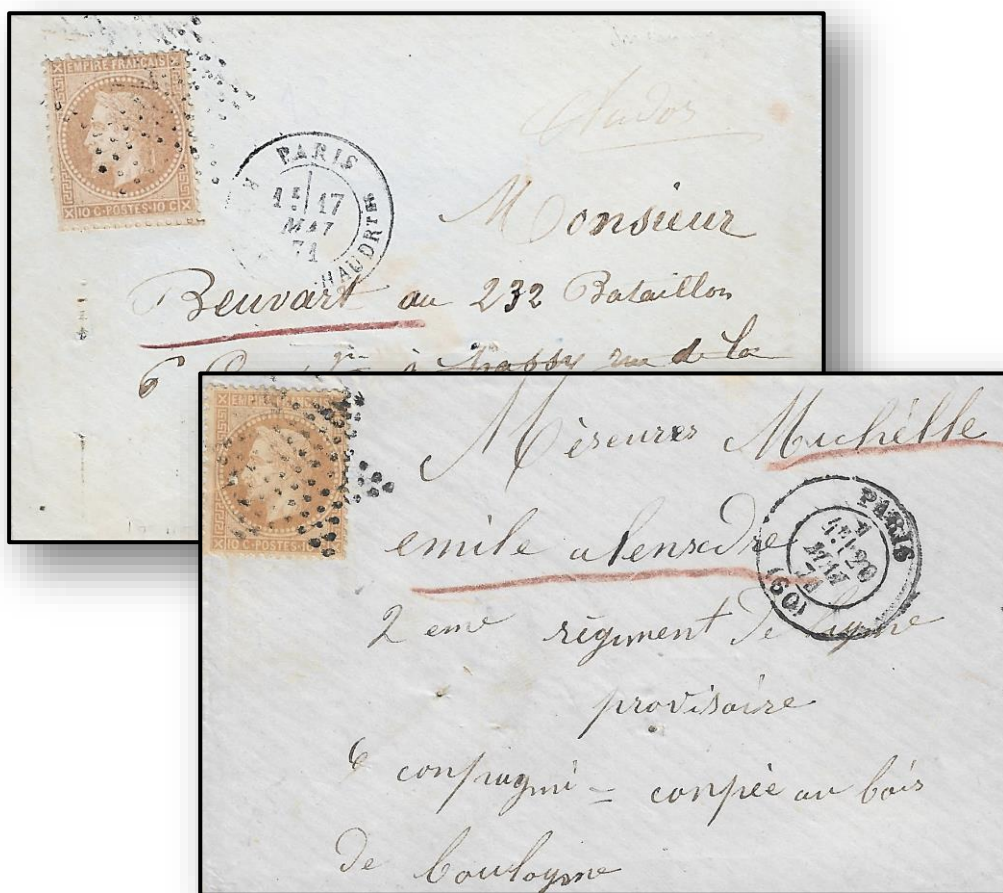 EMPIRE FRANÇAIS
10 C·POSTES·10 C
PARIS
17
MAI
71
HAUDRTES
Monsieur
Beuvart au 232 Bataillon
6 à rue de la
EMPIRE FRANÇAIS
10 C·POSTES·10 C
Méseures Michélle
PARIS
20
MAI
71
(60)
emile alensedre
2 eme régiment de ligne
provisoire
6 conpagni = conpée au bois
de boulogne